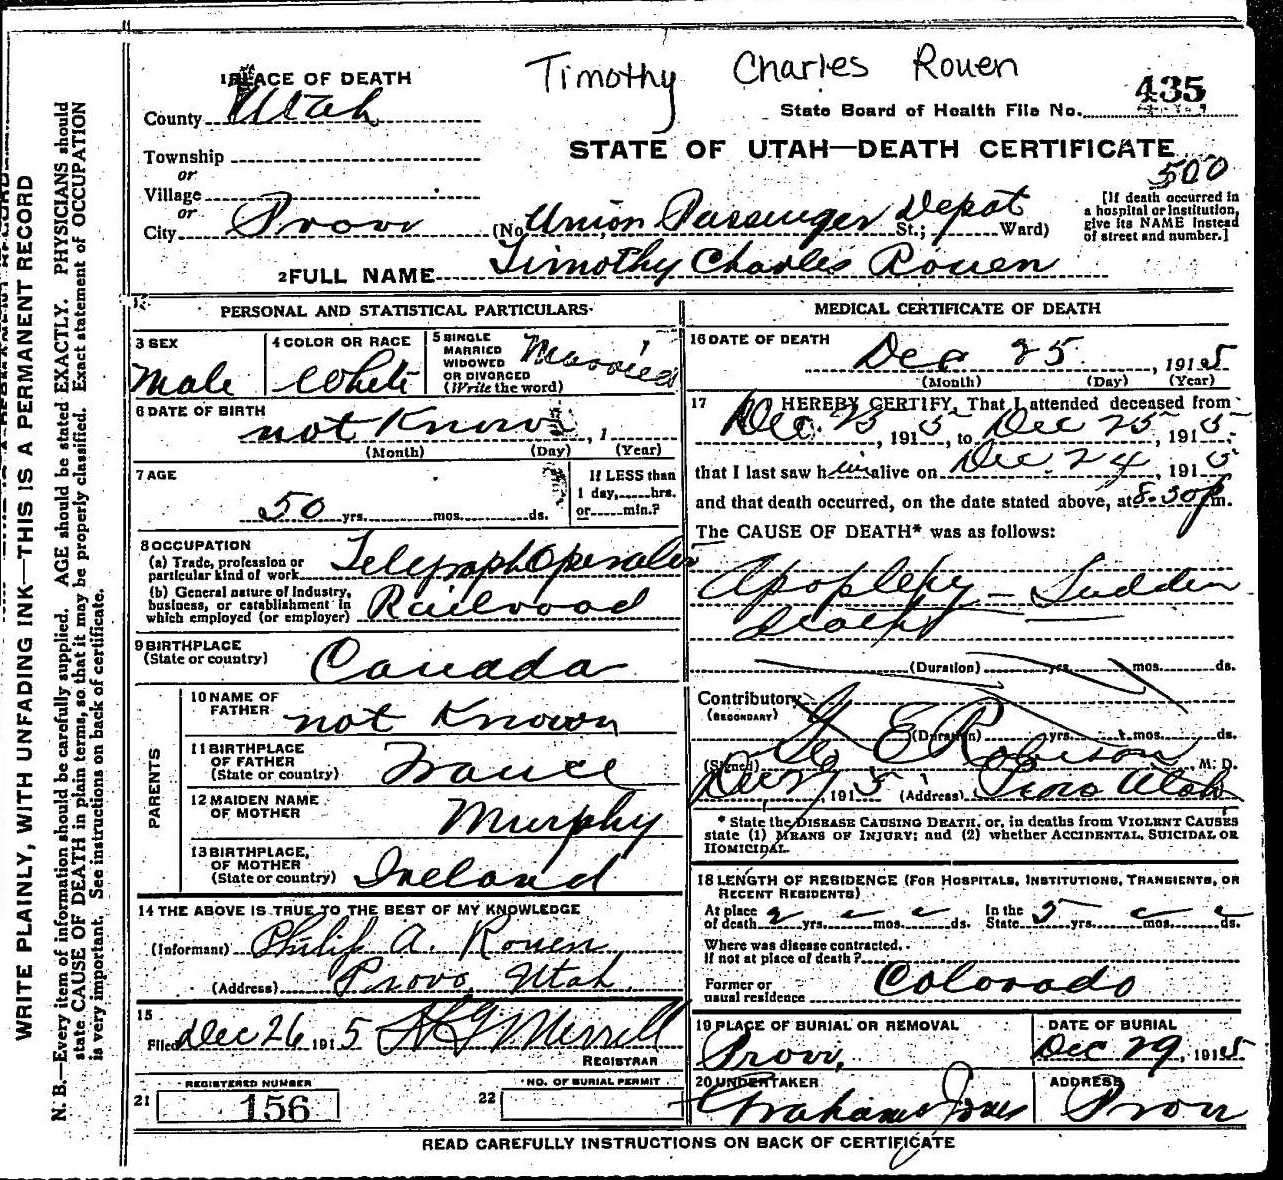 Timothy Charles Rouen
1 PLACE OF DEATH
County Utah
State Board of Health File No. 435
Township
or
STATE OF UTAH—DEATH CERTIFICATE
500
Village
or
City Provo (No. Union Passenger Depot St.; Ward)
[If death occurred in
a hospital or institution,
give its NAME instead
of street and number.]
2 FULL NAME Timothy Charles Rouen
PERSONAL AND STATISTICAL PARTICULARS
3 SEX
Male
4 COLOR OR RACE
White
5 SINGLE
MARRIED
WIDOWED
OR DIVORCED
(Write the word)
Married
6 DATE OF BIRTH
not Known, 1
(Month) (Day) (Year)
7 AGE
50 yrs. mos. ds.
If LESS than
1 day, hrs.
or min.?
8 OCCUPATION
(a) Trade, profession or
particular kind of work Telegraph Operator
(b) General nature of Industry,
business, or establishment in
which employed (or employer) Railroad
9 BIRTHPLACE
(State or country) Canada
PARENTS
10 NAME OF
FATHER not Known
11 BIRTHPLACE
OF FATHER
(State or country) France
12 MAIDEN NAME
OF MOTHER Murphy
13 BIRTHPLACE,
OF MOTHER
(State or country) Ireland
14 THE ABOVE IS TRUE TO THE BEST OF MY KNOWLEDGE
(Informant) Philip A. Rouen
(Address) Provo, Utah
15
Filed Dec 26 1915 Merrell
REGISTRAR
REGISTERED NUMBER
21 156
NO. OF BURIAL PERMIT
22
MEDICAL CERTIFICATE OF DEATH
16 DATE OF DEATH
Dec 25, 1915
(Month) (Day) (Year)
17 I HEREBY CERTIFY, That I attended deceased from
Dec. 25, 1915, to Dec 25, 1915
that I last saw him alive on Dec. 24, 1915
and that death occurred, on the date stated above, at 8.30 p m.
The CAUSE OF DEATH* was as follows:
Apoplexy — Sudden
death
(Duration) yrs. mos. ds.
Contributory
(SECONDARY)
(Duration) yrs. mos. ds.
(Signed) E Robison M. D.
Dec 27, 1915 (Address) Provo Utah
* State the DISEASE CAUSING DEATH, or, in deaths from VIOLENT CAUSES
state (1) MEANS OF INJURY; and (2) whether ACCIDENTAL, SUICIDAL OR
HOMICIDAL.
18 LENGTH OF RESIDENCE (FOR HOSPITALS, INSTITUTIONS, TRANSIENTS, OR
RECENT RESIDENTS)
At place
of death 2 yrs. mos. ds. In the
State 5 yrs. mos. ds.
Where was disease contracted,
if not at place of death?
Former or
usual residence Colorado
19 PLACE OF BURIAL OR REMOVAL
Provo,
DATE OF BURIAL
Dec 29, 1915
20 UNDERTAKER
Graham Jones
ADDRESS
Provo
READ CAREFULLY INSTRUCTIONS ON BACK OF CERTIFICATE
WRITE PLAINLY, WITH UNFADING INK—THIS IS A PERMANENT RECORD
N. B.—Every item of information should be carefully supplied. AGE should be stated EXACTLY. PHYSICIANS should
state CAUSE OF DEATH in plain terms, so that it may be properly classified. Exact statement of OCCUPATION
is very important. See instructions on back of certificate.